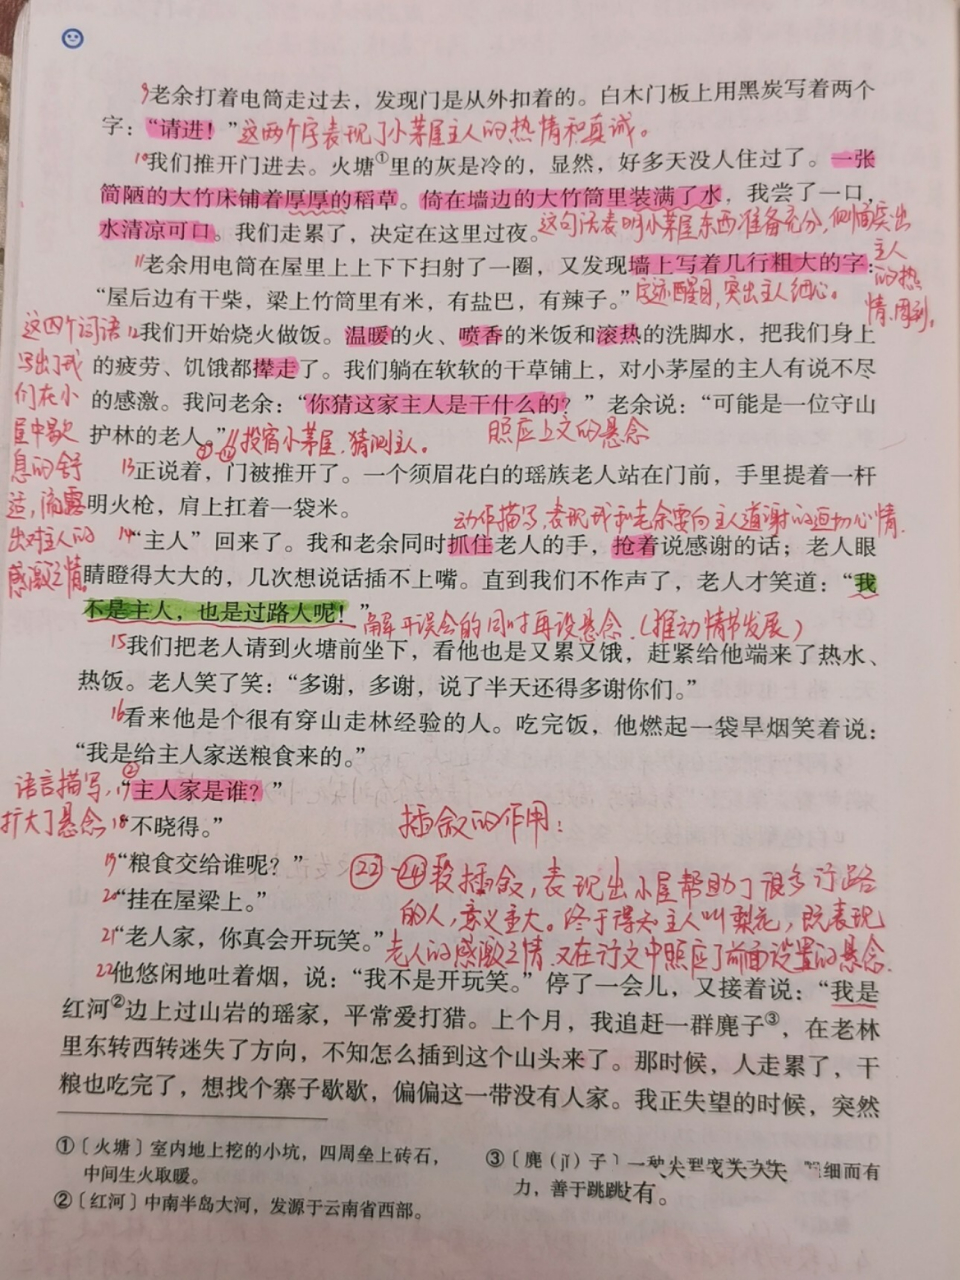 9老余打着电筒走过去，发现门是从外扣着的。白木门板上用黑炭写着两个
字：“请进！”这两个字表现了小茅屋主人的热情和真诚。
10我们推开门进去。火塘①里的灰是冷的，显然，好多天没人住过了。一张
简陋的大竹床铺着厚厚的稻草。倚在墙边的大竹筒里装满了水，我尝了一口，
水清凉可口。我们走累了，决定在这里过夜。
这句话表明小茅屋东西准备充分，侧面突出
主人
的热
情、周到。
11老余用电筒在屋里上上下下扫射了一圈，又发现墙上写着几行粗大的字：
“屋后边有干柴，梁上竹筒里有米，有盐巴，有辣子。”
字迹醒目，突出主人细心。
12我们开始烧火做饭。温暖的火、喷香的米饭和滚热的洗脚水，把我们身上
的疲劳、饥饿都撵走了。我们躺在软软的干草铺上，对小茅屋的主人有说不尽
的感激。我问老余：“你猜这家主人是干什么的？”老余说：“可能是一位守山
护林的老人。”
投宿小茅屋，猜测主人。
照应上文的悬念
这四个词语
写出了我
们在小
屋中歇
息的舒
适，流露
出对主人的
感激之情。
13正说着，门被推开了。一个须眉花白的瑶族老人站在门前，手里提着一杆
明火枪，肩上扛着一袋米。
动作描写，表现我和老余要向主人道谢的迫切心情.
14“主人”回来了。我和老余同时抓住老人的手，抢着说感谢的话；老人眼
睛瞪得大大的，几次想说话插不上嘴。直到我们不作声了，老人才笑道：“我
不是主人，也是过路人呢！”
解开误会的同时再设悬念.（推动情节发展）
15我们把老人请到火塘前坐下，看他也是又累又饿，赶紧给他端来了热水、
热饭。老人笑了笑：“多谢，多谢，说了半天还得多谢你们。”
16看来他是个很有穿山走林经验的人。吃完饭，他燃起一袋旱烟笑着说：
“我是给主人家送粮食来的。”
语言描写，
扩大了悬念
17“主人家是谁？”
②
18“不晓得。”
19“粮食交给谁呢？”
20“挂在屋梁上。”
21“老人家，你真会开玩笑。”
插叙的作用：
㉒-㉔段插叙，表现出小屋帮助了很多行路
的人，意义重大。终于得知主人叫梨花，既表现
老人的感激之情.又在行文中照应了前面设置的悬念.
22他悠闲地吐着烟，说：“我不是开玩笑。”停了一会儿，又接着说：“我是
红河②边上过山岩的瑶家，平常爱打猎。上个月，我追赶一群麂子③，在老林
里东转西转迷失了方向，不知怎么插到这个山头来了。那时候，人走累了，干
粮也吃完了，想找个寨子歇歇，偏偏这一带没有人家。我正失望的时候，突然
①〔火塘〕室内地上挖的小坑，四周垒上砖石，
中间生火取暖。
②〔红河〕中南半岛大河，发源于云南省西部。
③〔麂（jǐ）子〕一种 细而有
力，善于跳 有。